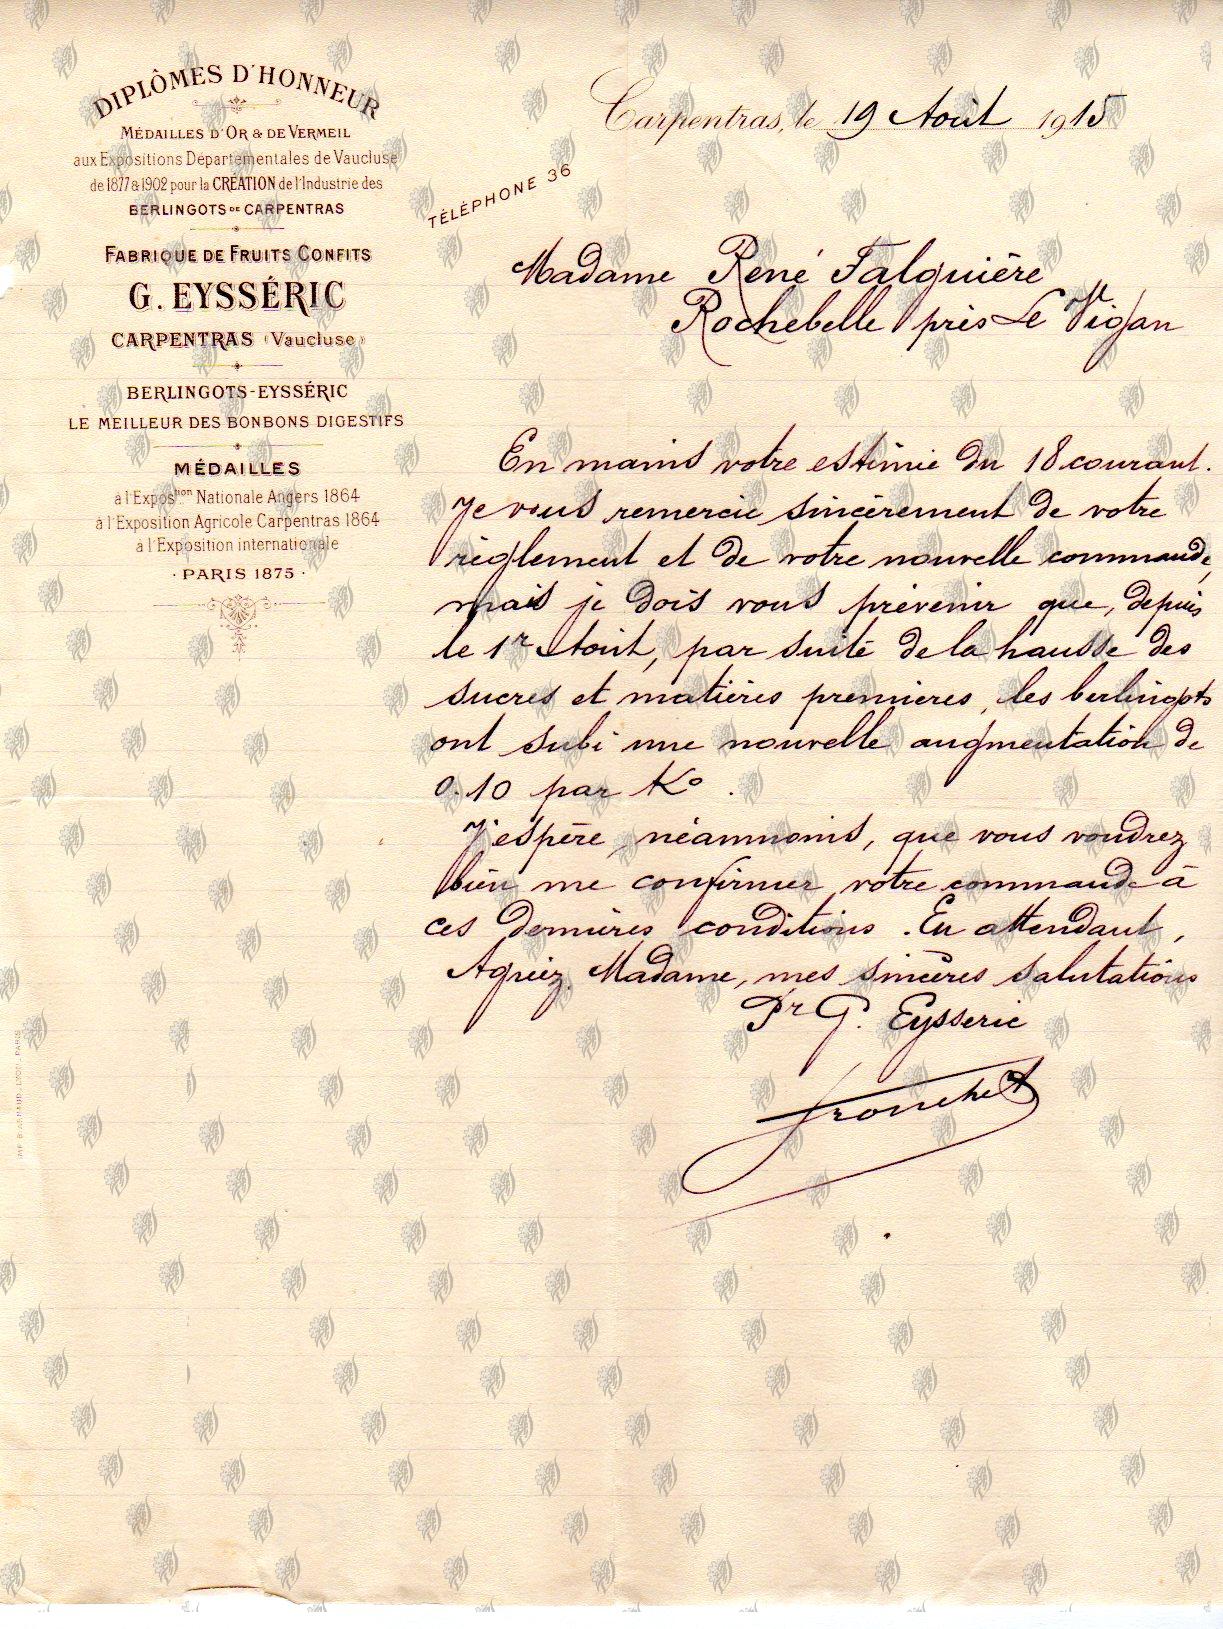 DIPLÔMES D'HONNEUR
MÉDAILLES D'OR & DE VERMEIL
aux Expositions Départementales de Vaucluse
de 1877 & 1902 pour la CRÉATION de l'Industrie des
BERLINGOTS DE CARPENTRAS
FABRIQUE DE FRUITS CONFITS
G. EYSSÉRIC
CARPENTRAS (Vaucluse)
BERLINGOTS-EYSSÉRIC
LE MEILLEUR DES BONBONS DIGESTIFS
MÉDAILLES
à l'Expos^tion Nationale Angers 1864
à l'Exposition Agricole Carpentras 1864
à l'Exposition internationale
· PARIS 1875 ·
TÉLÉPHONE 36
Carpentras, le 19 Août 1915
Madame René Falguière
Rochebelle près Le Vigan
En mains votre estimée du 18 courant.
Je vous remercie sincèrement de votre
règlement et de votre nouvelle commande,
mais je dois vous prévenir que, depuis
le 1er Août, par suite de la hausse des
sucres et matières premières, les berlingots
ont subi une nouvelle augmentation de
0.10 par K°.
J'espère, néammoins, que vous voudrez
bien me confirmer votre commande à
ces dernières conditions. En attendant,
Agréez, Madame, mes sincères salutations
Pr G. Eysseric